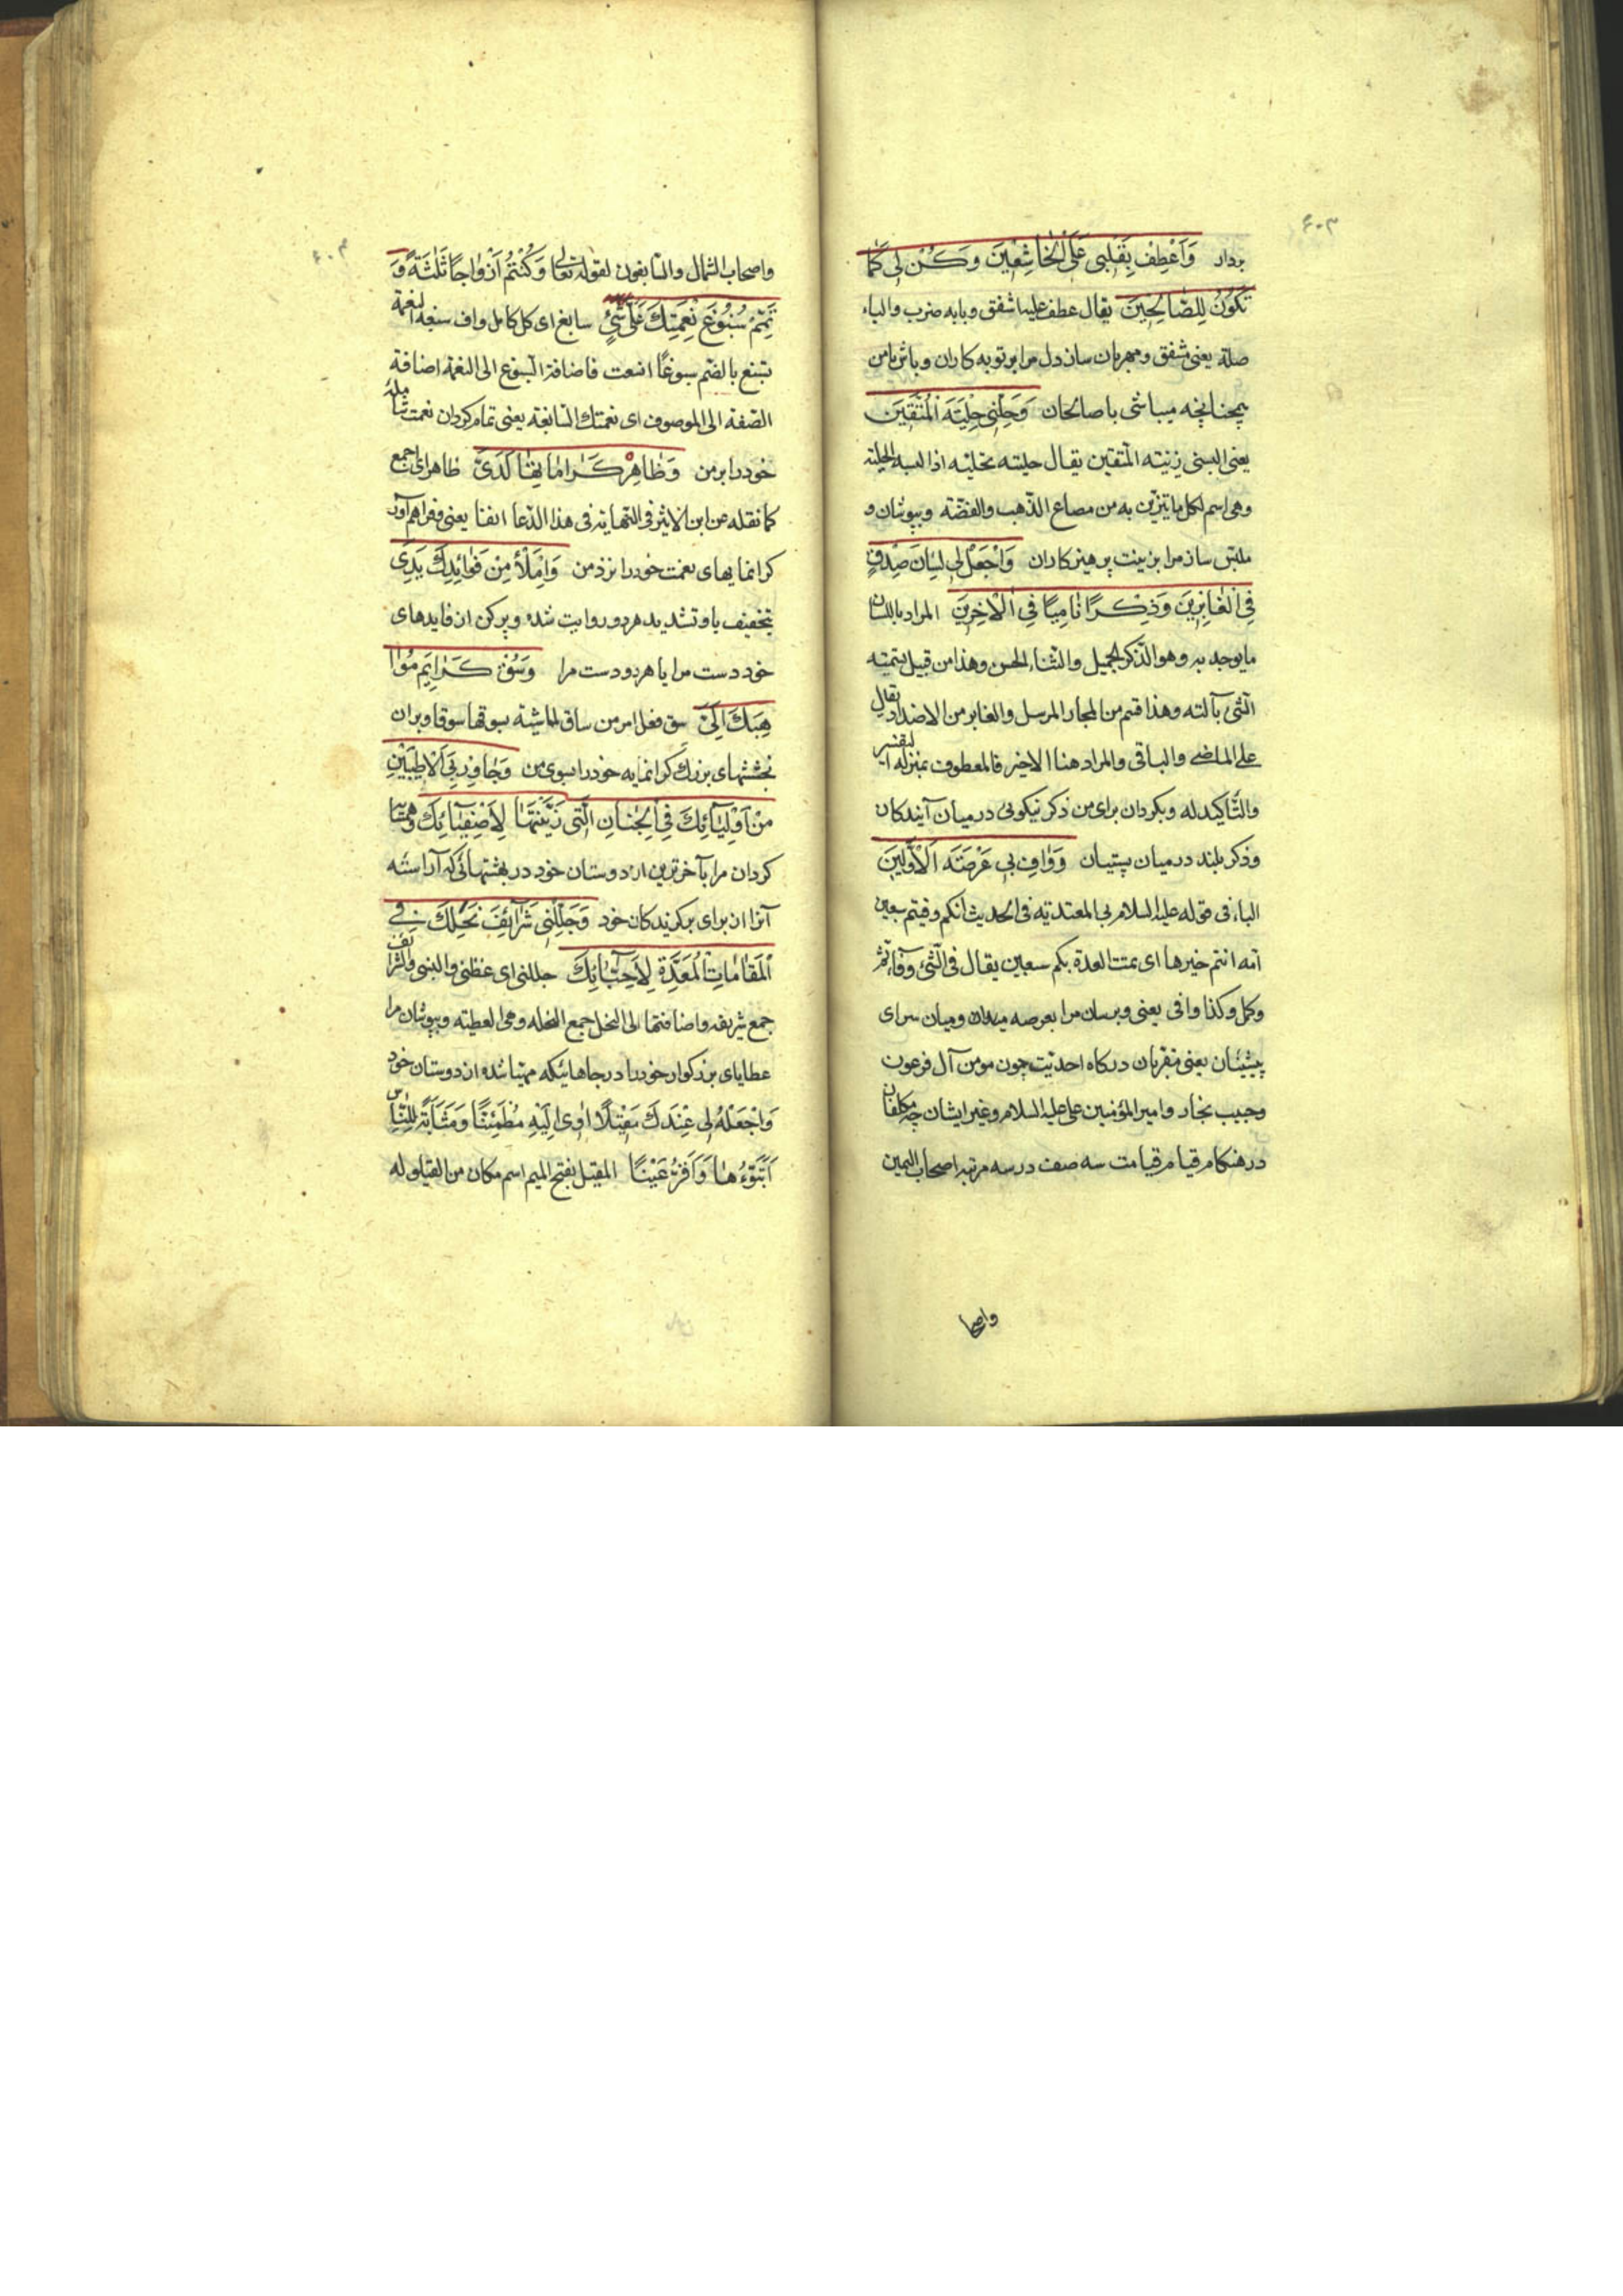 ۶۰۳
بردار وَاَعْطِفْ بِقَلْبی عَلَی الْخٰاشِعینَ وَکُنْ لی کَمٰا
تَکُونُ لِلصّٰالِحینَ یقال عطف علیه اشفق وبابه ضرب والباء
صلة یعنی مشفق ومهربان ساز دل مرا بر توبه کاران وباش با من
همچنانچه میباشی با صالحان وَحَلِّنی حِلْیَةَ الْمُتَّقینَ
یعنی البسنی زینة المتقین یقال حلیته تحلیة اذا البسه الحلیة
وهی اسم لکل ما یتزین به من مصاغ الذهب والفضة وبپوشان و
ملبس ساز مرا بزینت پرهیزکاران وَاجْعَلْ لی لِسٰانَ صِدْقٍ
فِی الْغٰابِرینَ وَذِکْرًا نٰامِیًا فِی الْاٰخِرینَ المراد باللسان
ما یوجد به وهو الذکر الجمیل والثناء الحسن وهذا من قبیل تسمیة
الشئ بآلته وهذا قسم من المجاز المرسل والغابر من الاضداد یقال
علی الماضی والباقی والمراد هنا الاخیر فالمعطوف بمنزلة التفسیر
والتاکید له وبکردان برای من ذکر نیکوئی در میان آیندکان
وذکر بلند در میان پسینان وَوٰافِ بی عَرْصَةَ الْاَوَّلینَ
الباء فی قوله علیه السلام بی للتعدیة فی الحدیث انکم وفیتم سبعین
امة انتم خیرها ای تمت العدة بکم سبعین یقال وفی الشئ
وکمل وکذا وافی یعنی وبرسان مرا بعرصه میدان ومیان سرای
پیشینیان یعنی مقربان درکاه احدیت چون مومن آل فرعون
وحبیب نجار وامیر المؤمنین علی علیه السلام وغیر ایشان چه مکلفان
در هنکام قیام قیامت سه صف در سه مرتبه اصحاب الیمین
واصحا
۶۰۴
واصحاب الشمال والسابقون لقوله تعالی وَکُنْتُمْ اَزْوٰاجًا ثَلٰثَةً وَ
تَمِّمْ سُبُوغَ نِعْمَتِکَ عَلَیَّ سابغ ای کل کامل واف سبغة النعمة
تسبغ بالضم سبوغًا اتسعت فاضافة السبوغ الی النعمة اضافة
الصفة الی الموصوف ای نعمتک السابغة یعنی تمام کردان نعمت شامله
خود را بر من وَظٰاهِرْ کَرٰامٰاتِهٰا لَدَیَّ ظاهر ای اجمع
کما نقله عن ابن الاثیر فی النهایة فی هذا الدعا انفا یعنی وفراهم آور
کرانمایهای نعمت خود را نزد من وَامْلَأْ مِنْ فَوٰائِدِکَ یَدَیَّ
بتخفیف یا وتشدید هر دو روایت شده وپرکن از فایدهای
خود دست مرا یا هر دو دست مرا وَسُقْ کَرٰایِمَ مَوٰا
هِبِکَ اِلَیَّ سق فعل امر من ساق الماشیة یسوقها سوقا وبران
بخششهای بزرک کرانمایه خود را بسوی من وَجٰاوِرْ بِیَ الْاَطْیَبینَ
مِنْ اَوْلِیٰآئِکَ فِی الْجِنٰانِ الَّتی زَیَّنْتَهٰا لِاَصْفِیٰآئِکَ وهمسایه
کردان مرا با خوشترین از دوستان خود در بهشتهائی که آراسته
آنرا از برای برکزیدکان خود وَجَلِّلْنی شَرٰآئِفَ نِحَلِکَ فی
الْمَقٰامٰاتِ الْمُعَدَّةِ لِاَحِبّٰآئِکَ جللنی ای غطنی والبسنی والشرائف
جمع شریفه واضافتها الی النحل جمع النحله وهی العطیة وبپوشان مرا
عطایای بزرکوار خود را در جاهائیکه مهیا شده از دوستان خود
وَاجْعَلْ لی عِنْدَکَ مَقیلًا اٰوی اِلَیْهِ مُطْمَئِنًّا وَمَثٰابَةً لِلنّٰاسِ
اَتَبَوَّءُهٰا وَاَقَرُّ عَیْنًا المقیل بفتح المیم اسم مکان من القیلوله